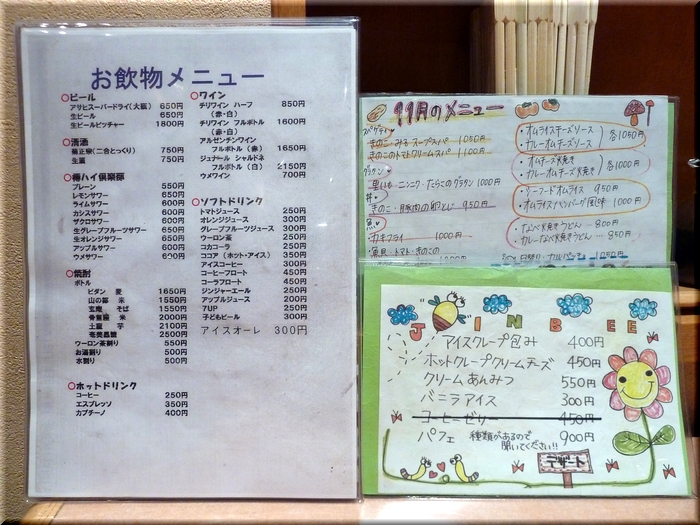 お飲物メニュー
○ビール
アサヒスーパードライ(大瓶) 650円
生ビール 650円
生ビールピッチャー 1800円
○清酒
菊正宗(二合とっくり) 750円
生酒 750円
○樽ハイ倶楽部
プレーン 550円
レモンサワー 650円
ライムサワー 600円
カシスサワー 600円
ザクロサワー 600円
生グレープフルーツサワー 650円
生オレンジサワー 650円
アップルサワー 600円
ウメサワー 600円
○焼酎
ボトル
ピタン 麦 1650円
山の露 米 1550円
玄庵 そば 1550円
米 2000円
土蔵 芋 2100円
奄美黒糖 2500円
ウーロン茶割り 550円
お湯割り 500円
水割り 500円
○ホットドリンク
コーヒー 250円
エスプレッソ 350円
カプチーノ 400円
○ワイン
チリワイン ハーフ 850円
(赤・白)
チリワイン フルボトル 1600円
(赤・白)
アルゼンチンワイン
フルボトル(赤) 1650円
ジュナール シャルドネ
フルボトル(白) 2150円
ウメワイン 700円
○ソフトドリンク
トマトジュース 250円
オレンジジュース 300円
グレープフルーツジュース 300円
ウーロン茶 250円
コカコーラ 250円
ココア(ホット・アイス) 350円
アイスコーヒー 300円
コーヒーフロート 450円
コーラフロート 450円
ジンジャーエール 250円
アップルジュース 200円
7UP 250円
子どもビール 300円
アイスオーレ 300円
11月のメニュー
スパゲティ
きのこ・みそスープスパ 1050円
きのこのトマトクリームスパ 1100円
グラタン
里いも・ニンニク・たらこのグラタン 1000円
丼
きのこ・豚肉の卵とじ 950円
魚
カキフライ 1000円
魚貝・トマト・きのこの
・オムライスチーズソース
・カレーオムチーズソース
各1050円
・オムチーズ焼き
・カレーオムチーズ焼き
各1000円
・シーフードオムライス 950円
・オムライスハンバーグ風味 1000円
・なべ焼きうどん …… 800円
・カレーなべ焼きうどん … 850円
JINBEE
アイスクレープ包み 400円
ホットクレープクリームチーズ 450円
クリームあんみつ 550円
バニラアイス 300円
コーヒーゼリー 450円
パフェ 種類があるので聞いてください!! 900円
デザート